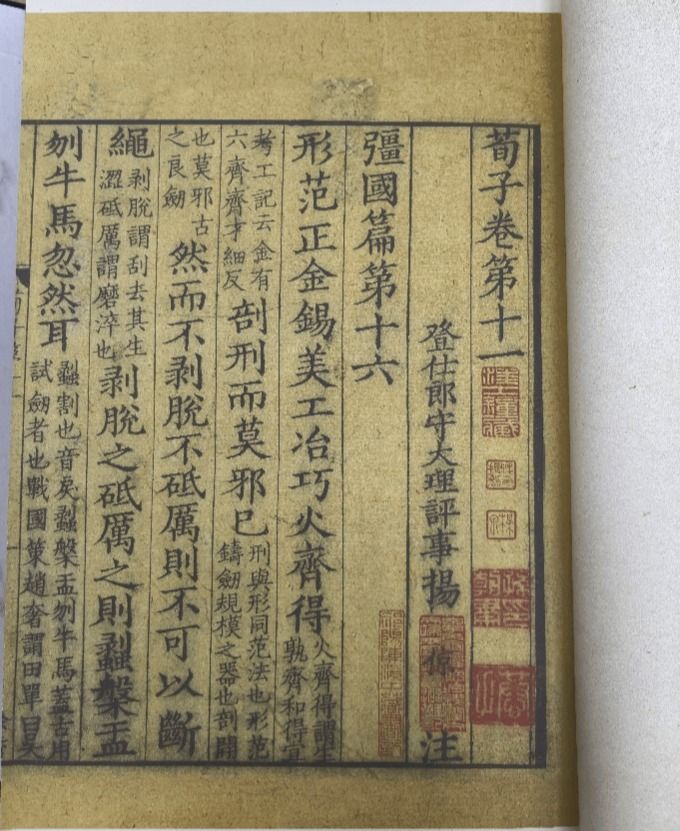 荀子卷第十一
登仕郎守大理評事揚倞注
彊國篇第十六
形范正金錫美工冶巧火齊得火齊得謂生孰齊和得宜
考工記云金有六齊齊才細反剖刑而莫邪已刑與形同范法也形范鑄劒規模之器也剖開
也莫邪古之良劒然而不剥脫不砥厲則不可以斷
繩剥脫謂刮去其生澀砥厲謂磨淬也剥脫之砥厲之則劙槃盂
刎牛馬忽然耳劙割也音戾劙槃盂刎牛馬蓋古用試劒者也戰國策趙奢謂田單曰吴